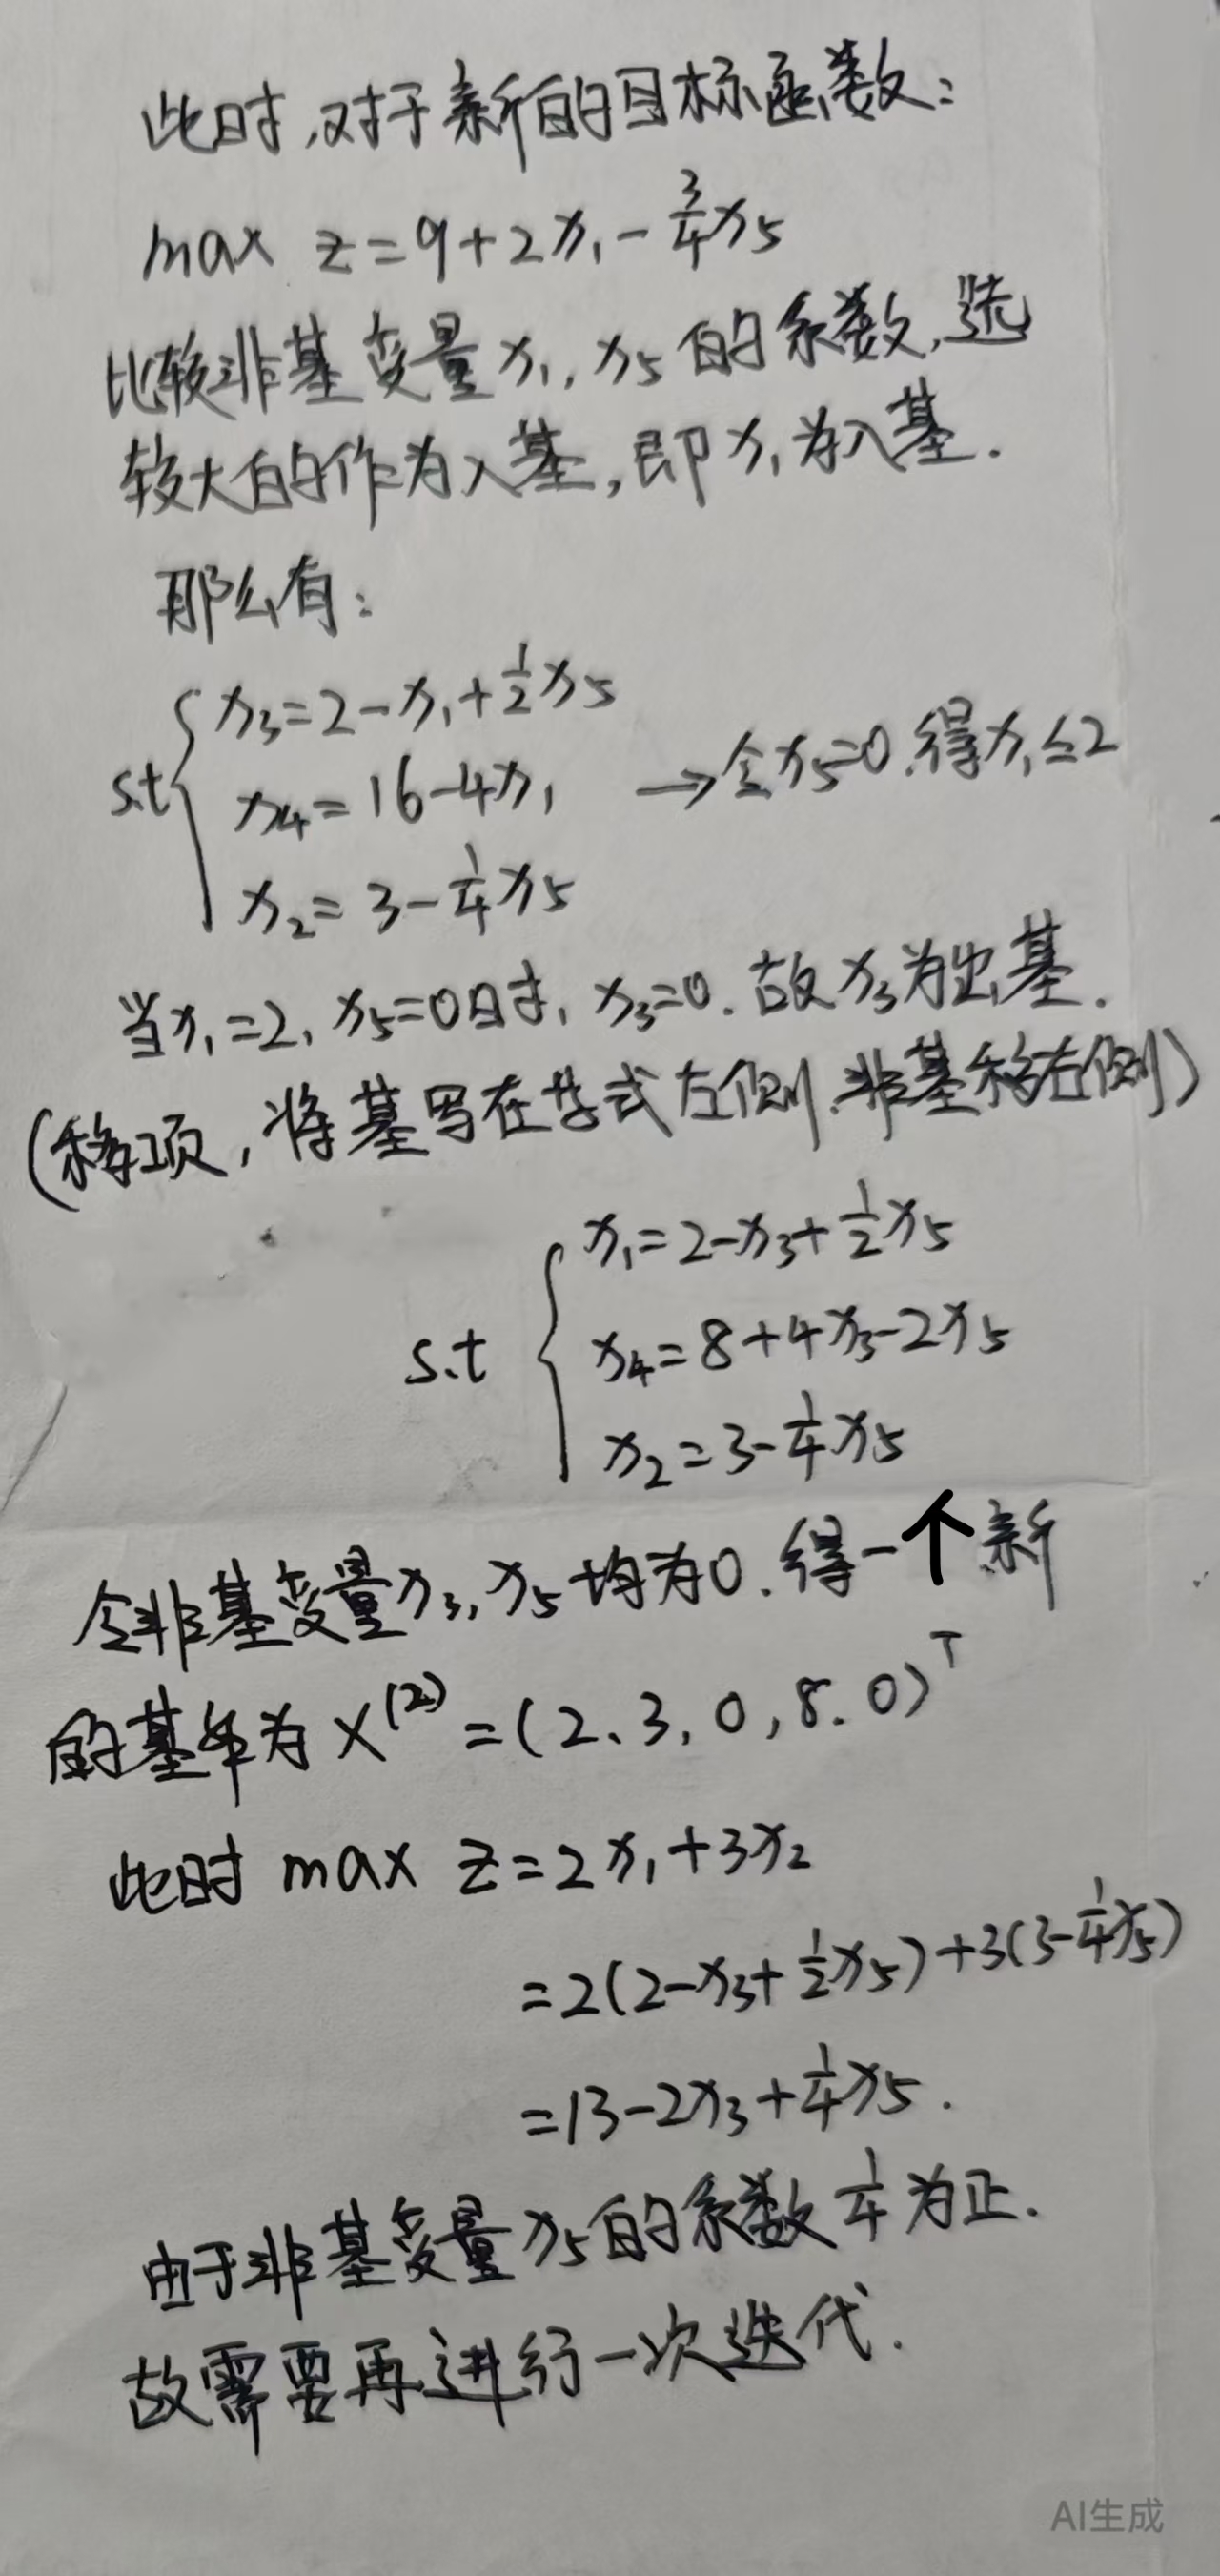 此时,对于新的目标函数:
max z=9+2x₁-3/4x₅
比较非基变量x₁,x₅的系数,选
较大的作为入基,即x₁为入基.
那么有:
s.t { x₃=2-x₁+1/2x₅
x₄=16-4x₁ →令x₅=0.得x₁≤2
x₂=3-1/4x₅
当x₁=2,x₅=0时,x₃=0.故x₃为出基.
(移项,将基写在等式左侧.非基移右侧)
s.t { x₁=2-x₃+1/2x₅
x₄=8+4x₃-2x₅
x₂=3-1/4x₅
令非基变量x₃,x₅均为0.得一个新
的基解为X⁽²⁾=(2、3,0,8.0)ᵀ
此时 max z=2x₁+3x₂
=2(2-x₃+1/2x₅)+3(3-1/4x₅)
=13-2x₃+1/4x₅.
由于非基变量x₅的系数1/4为正.
故需要再进行一次迭代.
AI生成